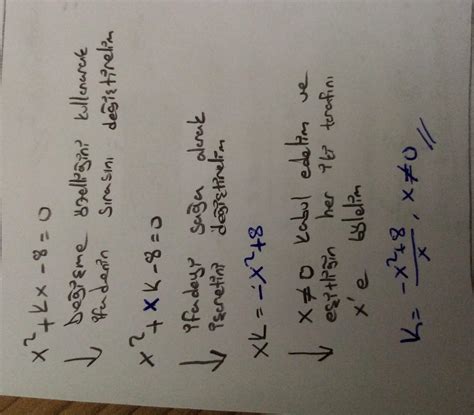 x²+kx-8=0
↓ Değişme özelliğini kullanarak
ifadenin sırasını değiştirelim
x²+xk-8=0
↓ ifadeyi sağa alarak
işaretini değiştirelim
xk=-x²+8
↓ x≠0 kabul edelim ve
eşitliğin her iki tarafını
x'e bölelim
k= -x²+8/x , x≠0 //